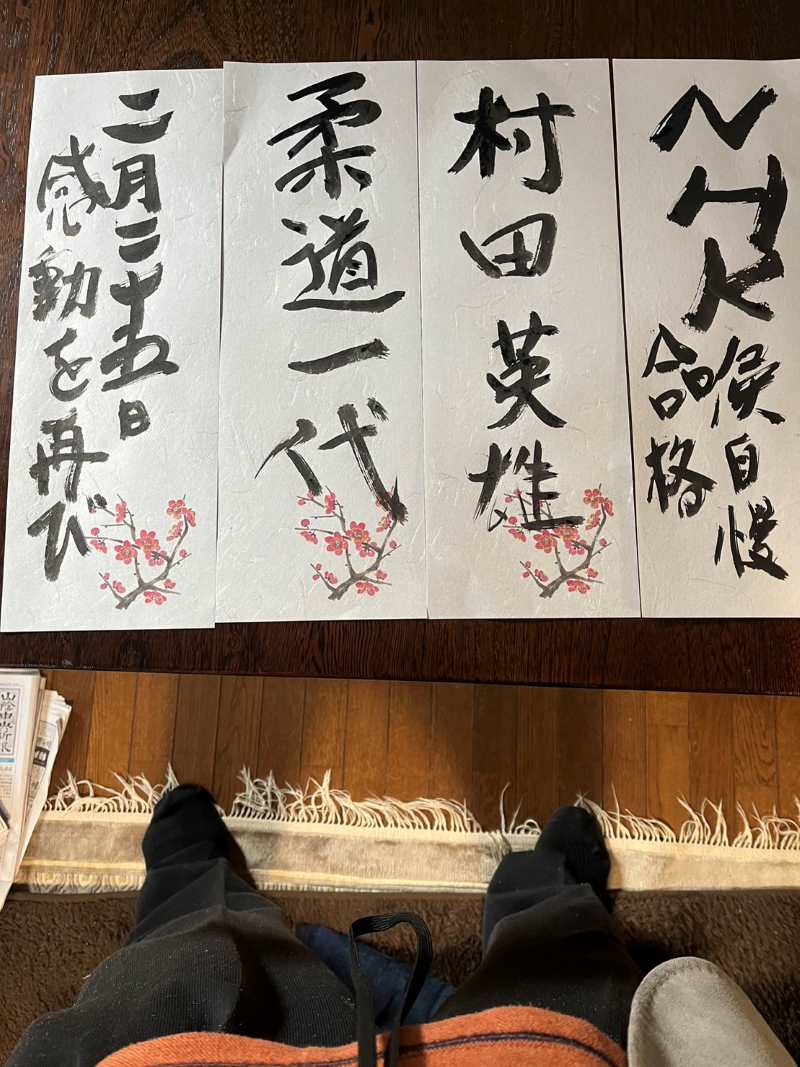 NHK
喉自慢
合格
村田英雄
柔道一代
二月二十五日
感動を再び
山陰中央新報